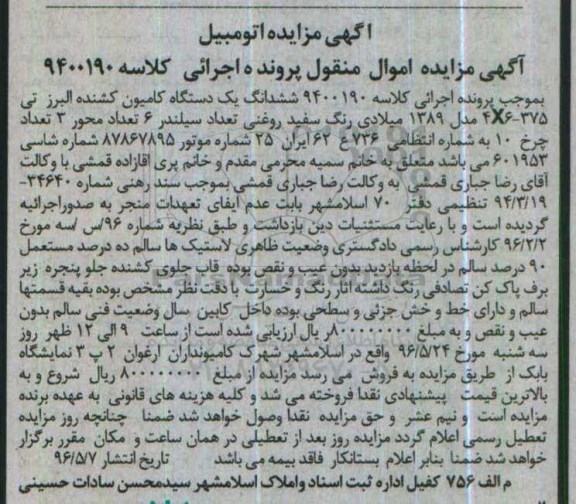 آگهی مزایده اتومبیل
آگهی مزایده اموال منقول پرونده اجرائی کلاسه ۹۴۰۰۱۹۰
بموجب پرونده اجرائی کلاسه ۹۴۰۰۱۹۰ ششدانگ یک دستگاه کامیون کشنده البرز تی
۳۷۵-۴X۶ مدل ۱۳۸۹ میلادی رنگ سفید روغنی تعداد سیلندر ۶ تعداد محور ۳ تعداد
چرخ ۱۰ به شماره انتظامی ۷۳۶ع ۶۲ ایران ۲۵ شماره موتور ۸۷۸۶۷۸۹۵ شماره شاسی
۶۰۱۹۵۳ می باشد متعلق به خانم سمیه محرمی مقدم و خانم پری اقازاده قمشی با وکالت
آقای رضا جباری قمشی به وکالت رضا جباری قمشی بموجب سند رهنی شماره ۳۴۶۴۰-
۹۴/۳/۱۹ تنظیمی دفتر ۷۰ اسلامشهر بابت عدم ایفای تعهدات منجر به صدوراجرائیه
گردیده است و با رعایت مستثنیات دین بازداشت و طبق نظریه شماره ۹۶/س/سه مورخ
۹۶/۲/۲ کارشناس رسمی دادگستری وضعیت ظاهری لاستیک ها سالم ده درصد مستعمل
۹۰ درصد سالم در لحظه بازدید بدون عیب و نقص بوده قاب جلوی کشنده جلو پنجره زیر
برف پاک کن تصادفی رنگ داشته اثار رنگ و خسارت با دقت نظر مشخص بوده بقیه قسمتها
سالم و دارای خط و خش جزئی و سطحی بوده داخل کابین سال وضعیت فنی سالم بدون
عیب و نقص و به مبلغ ۸۰۰۰۰۰۰۰۰ ریال ارزیابی شده است از ساعت ۹ الی ۱۲ ظهر روز
سه شنبه مورخ ۹۶/۵/۲۴ واقع در اسلامشهر شهرک کامیونداران ارغوان ۲ پ ۳ نمایشگاه
بابک از طریق مزایده به فروش می رسد مزایده از مبلغ ۸۰۰۰۰۰۰۰۰ ریال شروع و به
بالاترین قیمت پیشنهادی نقدا فروخته می شد و کلیه هزینه های قانونی به عهده برنده
مزایده است و نیم عشر و حق مزایده نقدا وصول خواهد شد ضمنا چنانچه روز مزایده
تعطیل رسمی اعلام گردد مزایده روز بعد از تعطیلی در همان ساعت و مکان مقرر برگزار
خواهد شد ضمنا بنابر اعلام بستانکار فاقد بیمه می باشد تاریخ انتشار ۹۶/۵/۷
م الف ۷۵۶ کفیل اداره ثبت اسناد واملاک اسلامشهر سیدمحسن سادات حسینی